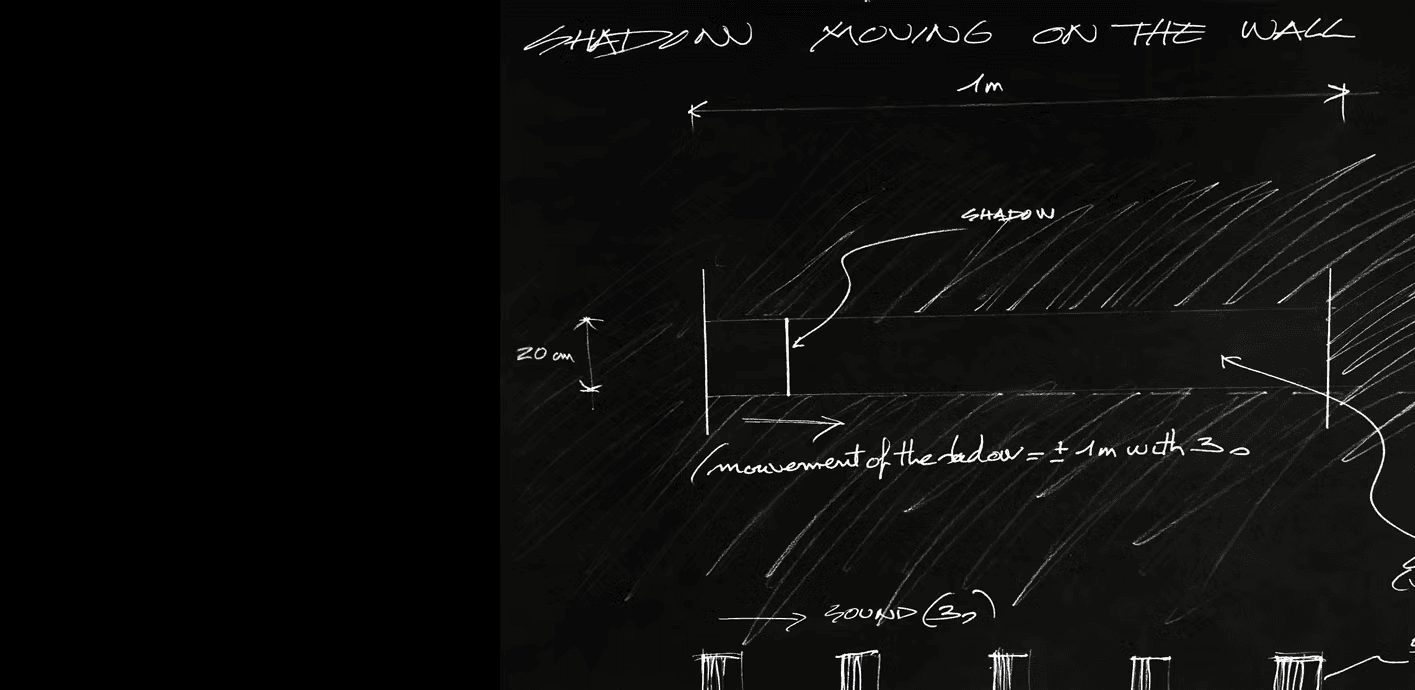 SHADOW MOVING ON THE WALL
1m
SHADOW
20 cm
(mouvement of the shadow = ± 1m with 3s
SOUND (3s)